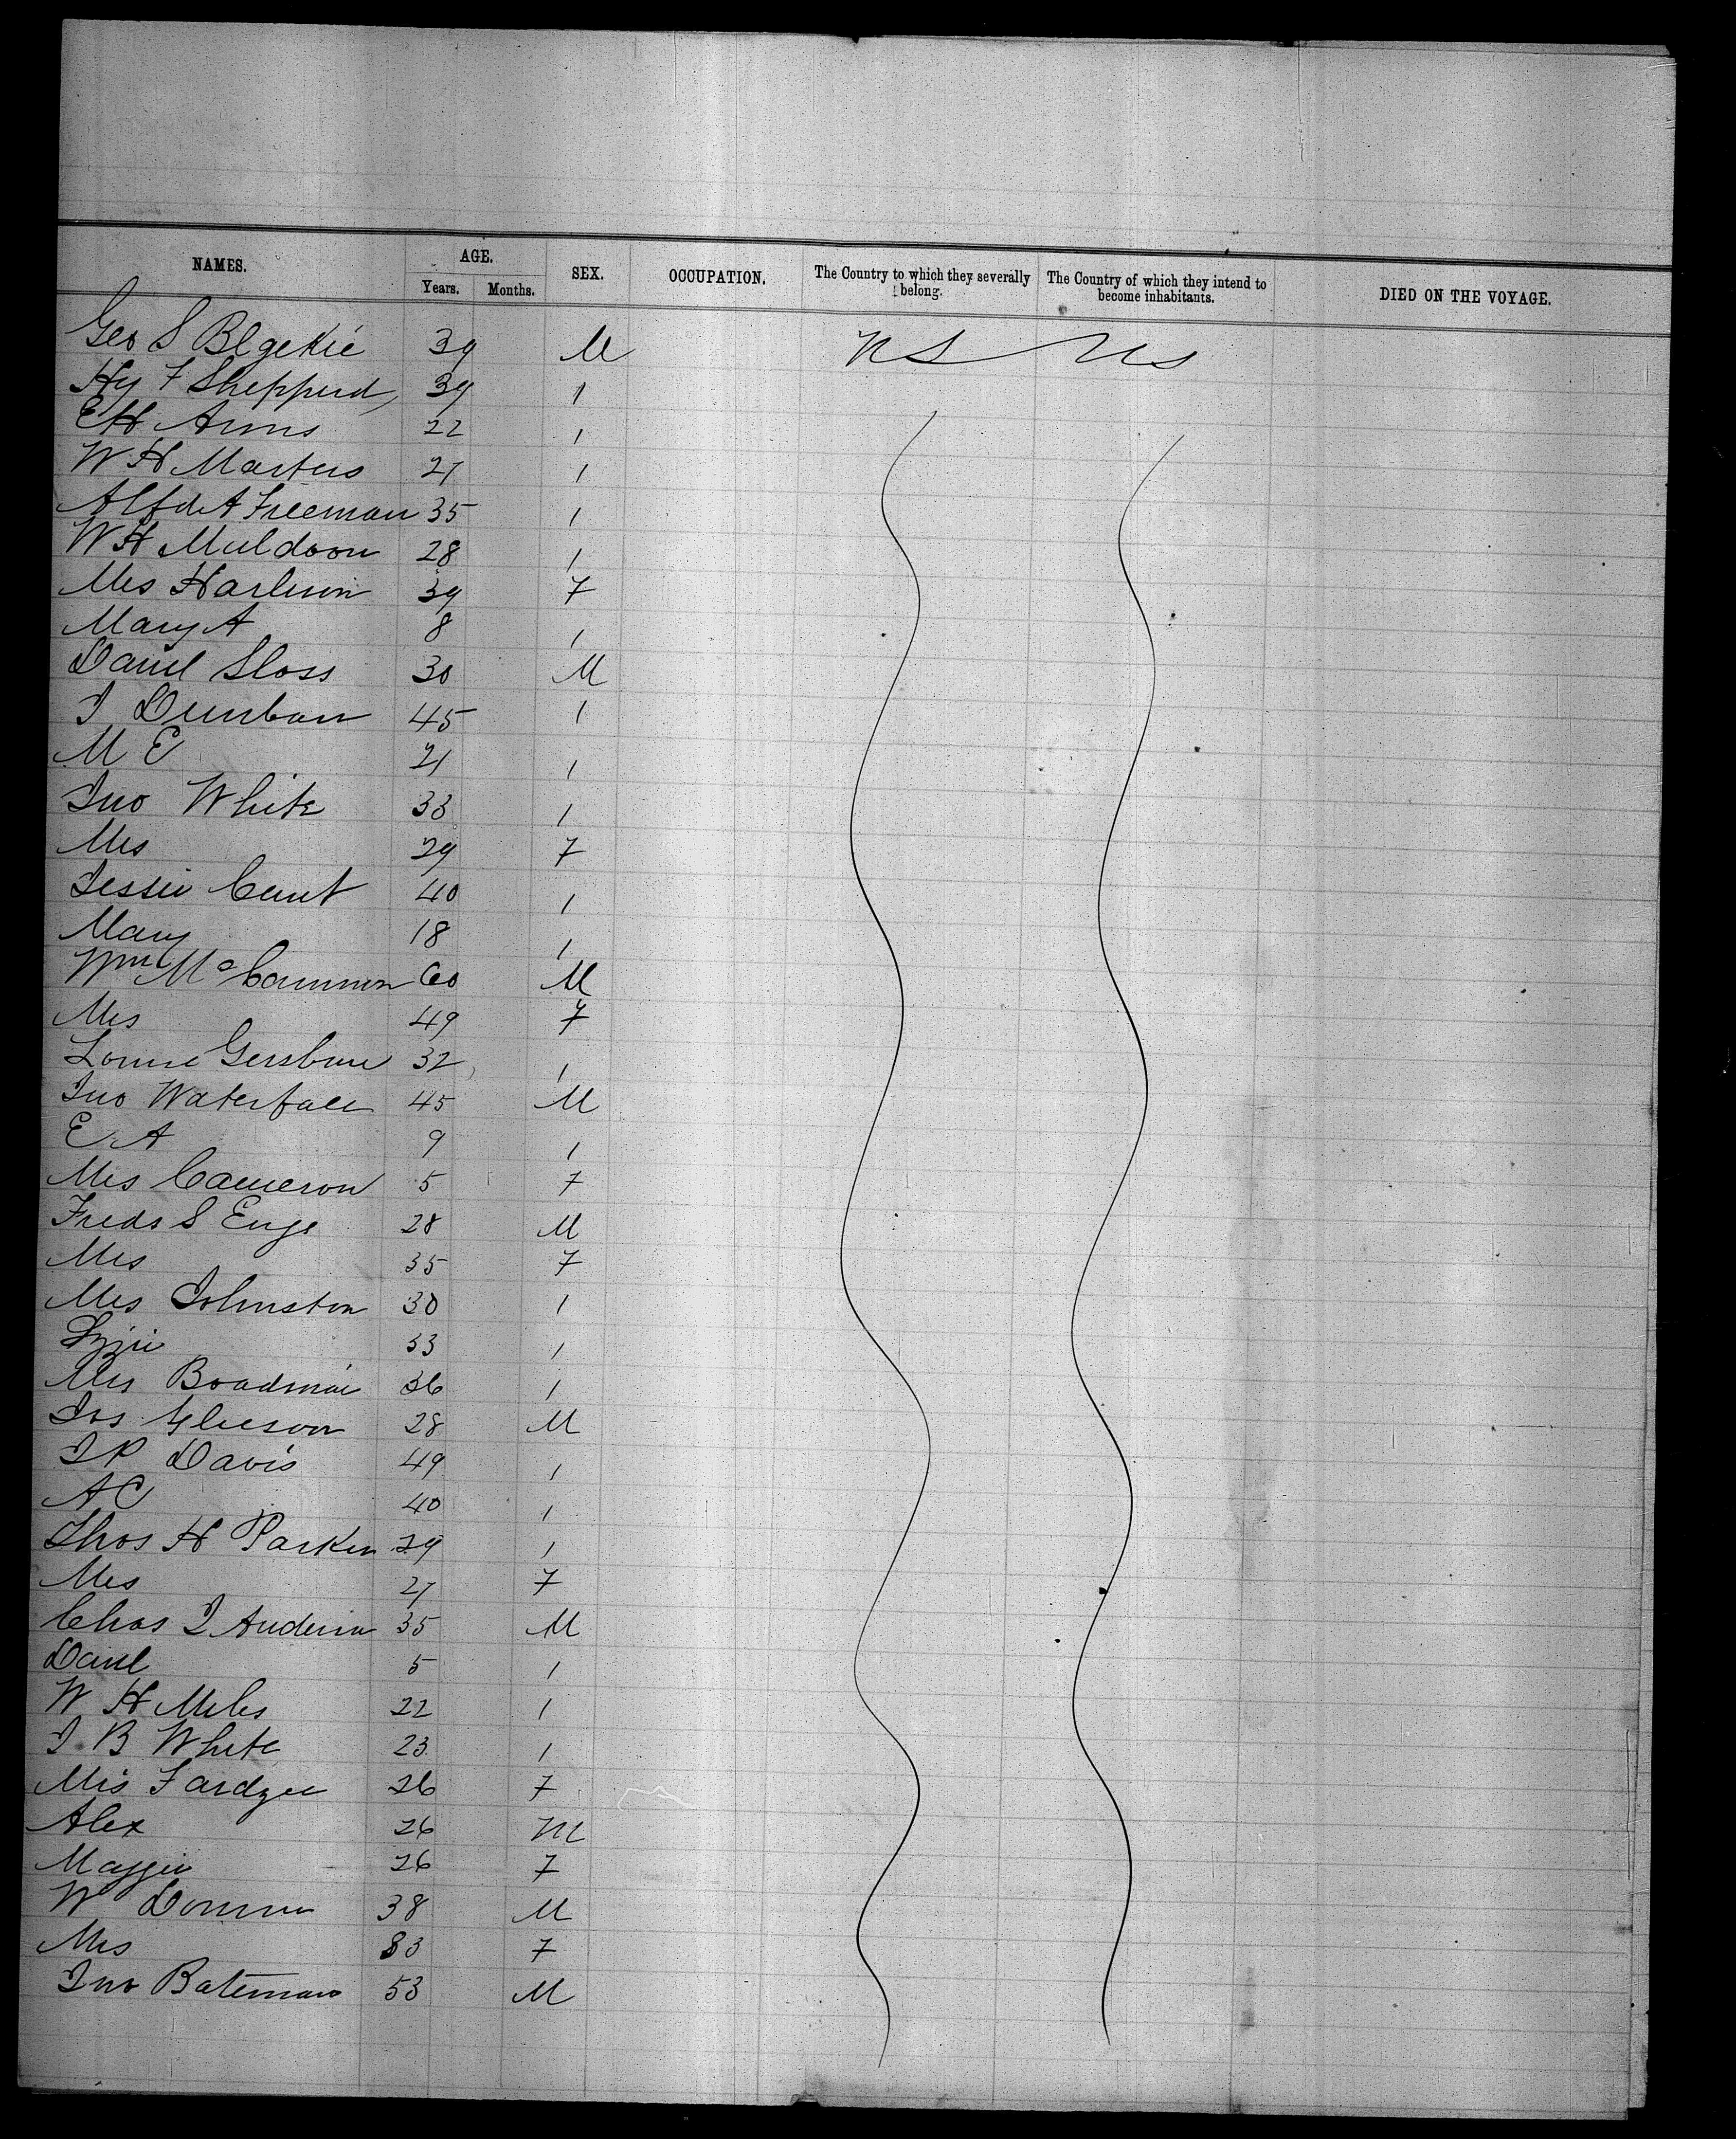 NAMES. AGE. SEX. OCCUPATION. The Country to which they severally belong. The Country of which they intend to become inhabitants. DIED ON THE VOYAGE.
Years. Months.
Geo S 39 M US US
Hy F Shepperd 39 1
E H Arms 22 1
W H Masters 21 1
Alfd A Freeman 35 1
W H Muldoon 28 1
Mrs Harleson 39 F
Mary A 8 1
Danl Sloss 30 M
J Dunbar 45 1
M E 21 1
Jno White 33 1
Mrs 29 F
Jessie 40 1
Mary 18 1
Wm McCammon 60 M
Mrs 49 F
32 1
Jno Waterfall 45 M
E A 9 1
Mrs Cameron 5 F
Fredk S Enge 28 M
Mrs 35 F
Mrs Johnston 30 1
Lizzie 33 1
Mrs 36 1
Jos Gleeson 28 M
J P Davis 49 1
A C 40 1
Thos H Parker 29 1
Mrs 27 F
Chas J Anderson 35 M
Danl 5 1
W H Miles 22 1
J B White 23 1
26 F
Alex 26 M
Maggie 26 F
W 38 M
Mrs 33 F
Jno Bateman 53 M